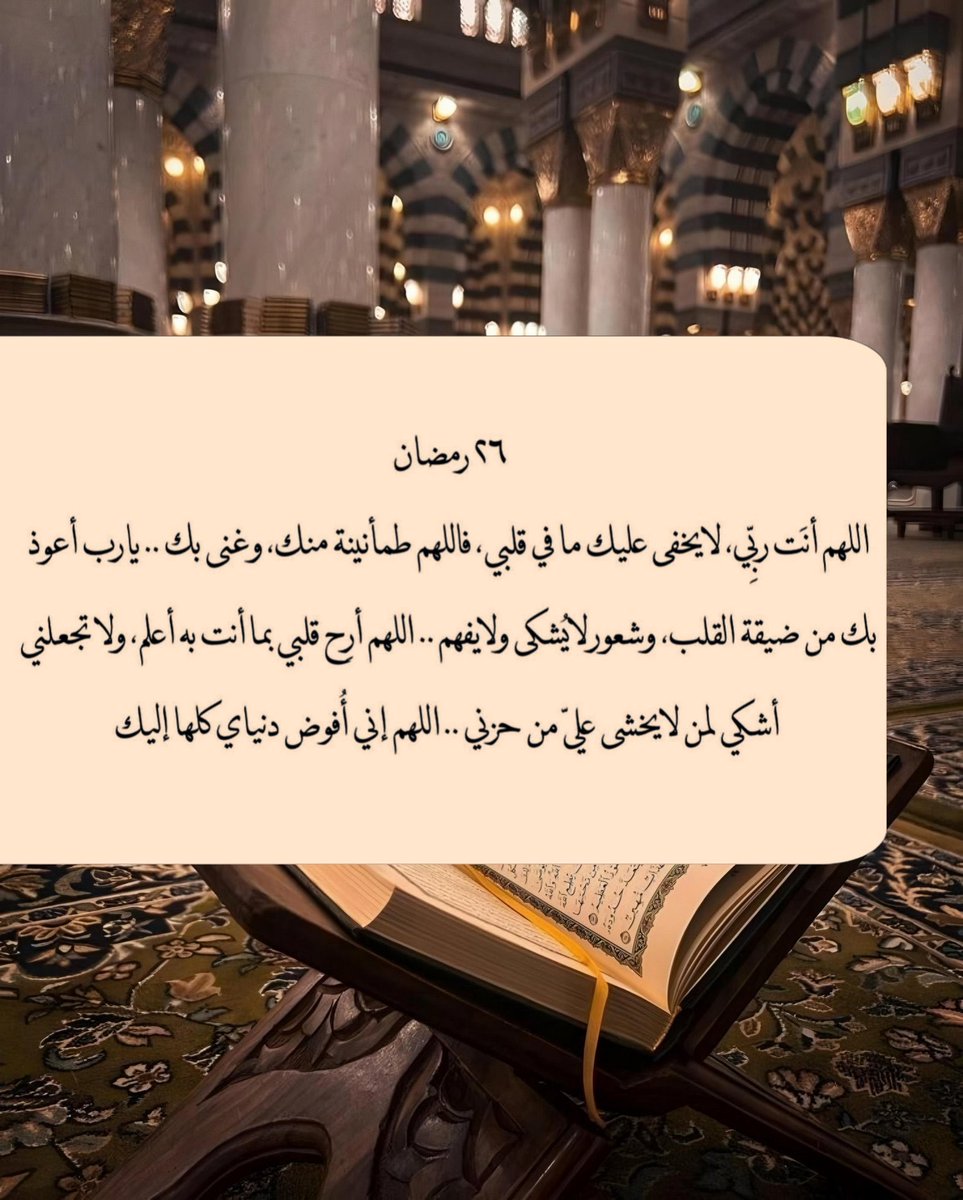 ٢٦ رمضان
اللهم أنَت ربِّي، لايخفى عليك ما في قلبي، فاللهم طمأنينة منك، وغنى بك .. يارب أعوذ
بك من ضيقة القلب، وشعور لايُشكى ولايفهم .. اللهم أرِح قلبي بما أنت به أعلم، ولا تجعلني
أشكي لمن لايخشى عليّ من حزني .. اللهم إني أُفوض دنياي كلها إليك